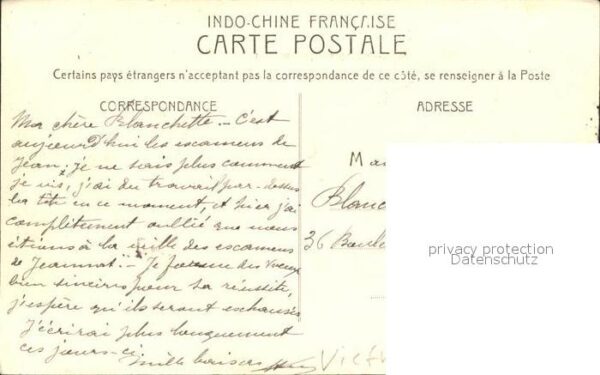 INDO-CHINE FRANÇAISE
CARTE POSTALE
Certains pays étrangers n'acceptent pas la correspondance de ce côté, se renseigner à la Poste
CORRESPONDANCE
ADRESSE
Ma chère Blanchette - C'est
aujourd'hui les examens de
Jean; je ne sais plus comment
je vis, j'ai du travail par-dessus
la tête en ce moment, et hier j'ai
complètement oublié que nous
étions à la veille des examens
de Jeannot. - Je forme des vœux
bien sincères pour sa réussite,
j'espère qu'ils seront exhaussés
J'écrirai plus longuement
ces jours-ci.
Mille baisers
Ma
Blanc
36
privacy protection
Datenschutz